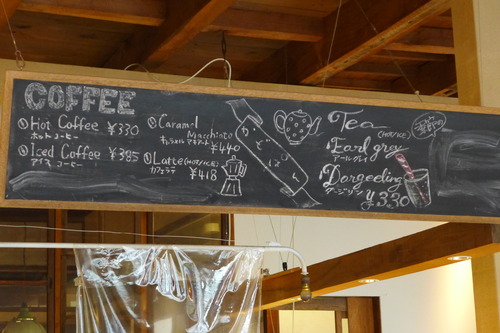 COFFEE
Hot Coffee ¥330
ホットコーヒー
Iced Coffee ¥385
アイスコーヒー
Caramel
Macchiato
キャラメルマキアート ¥440
Latte (HOT/ICE)
カフェラテ ¥418
Tea
(HOT/ICE)
Earl grey
アールグレイ
Dargeeling
ダージリン
¥330